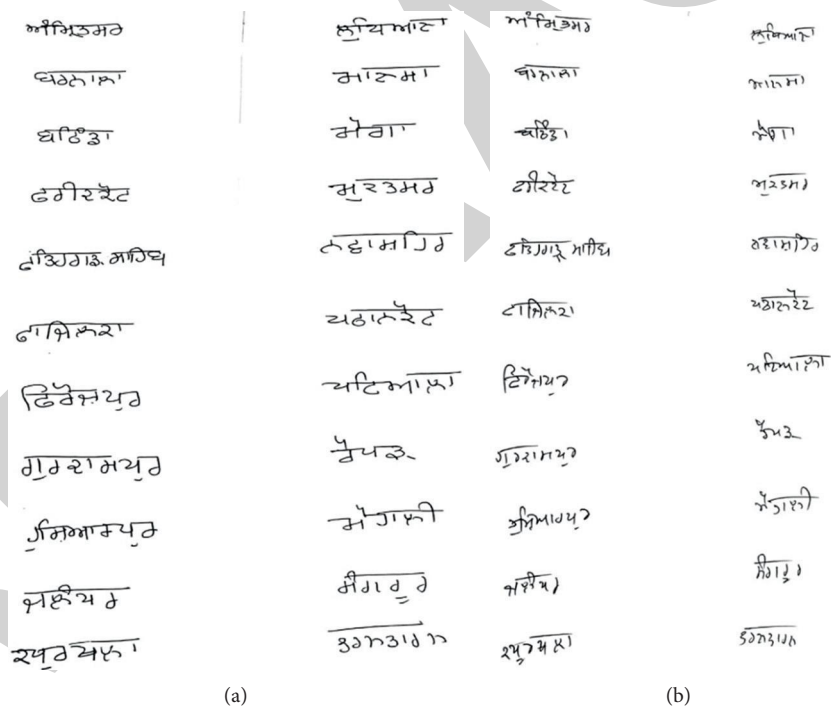 ਅੰਮ੍ਰਿਤਸਰ
ਬਰਨਾਲਾ
ਬਠਿੰਡਾ
ਫਰੀਦਕੋਟ
ਫਤਿਹਗੜ ਸਾਹਿਬ
ਫਾਜਿਲਕਾ
ਫਿਰੋਜਪੁਰ
ਗੁਰਦਾਸਪੁਰ
ਹੁਸਿਆਰਪੁਰ
ਜਲੰਧਰ
ਕਪੁਰਥਲਾ
ਲੁਧਿਆਣਾ
ਮਾਨਸਾ
ਮੋਗਾ
ਮੁਕਤਸਰ
ਨਵਾਸਹਿਰ
ਪਠਾਨਕੋਟ
ਪਟਿਆਲਾ
ਰੋਪੜ
ਮੋਹਾਲੀ
ਸੰਗਰੂਰ
ਤਰਨਤਾਰਨ
(a)
ਅੰਮ੍ਰਿਤਸਰ
ਬਰਨਾਲਾ
ਬਠਿੰਡਾ
ਫਰੀਦਕੋਟ
ਫਤਿਹਗੜ੍ਹ ਸਾਹਿਬ
ਫਾਜਿਲਕਾ
ਫਿਰੋਜਪੁਰ
ਗੁਰਦਾਸਪੁਰ
ਹੁਸਿਆਰਪੁਰ
ਜਲੰਧਰ
ਕਪੂਰਥਲਾ
ਲੁਧਿਆਨਾ
ਮਾਨਸਾ
ਮੋਗਾ
ਮੁਕਤਸਰ
ਨਵਾਸਹਿਰ
ਪਠਾਨਕੋਟ
ਪਟਿਆਲਾ
ਰੋਪੜ
ਮੋਹਾਲੀ
ਸੰਗਰੂਰ
ਤਰਨਤਾਰਨ
(b)